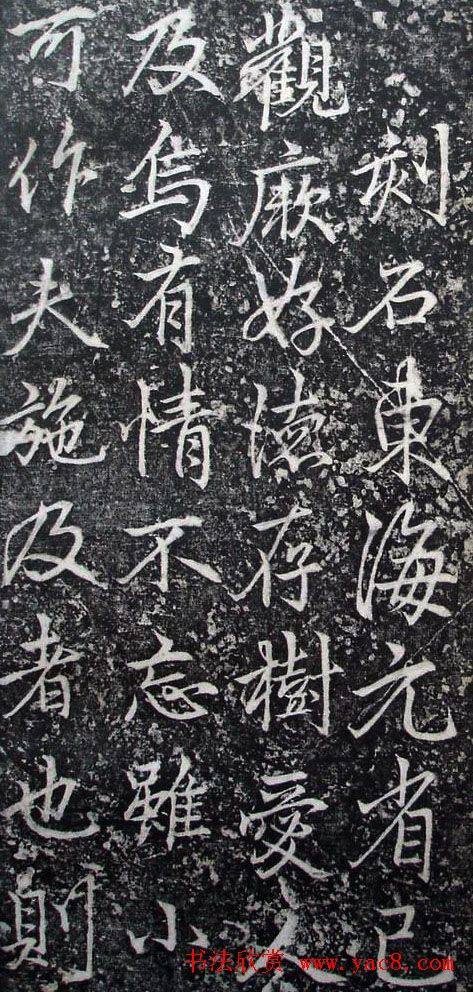 刻石東海元省己
觀厥好德存樹愛人
及烏有情不忘雖小
可作夫施及者也則
书法欣赏 www.yac8.com